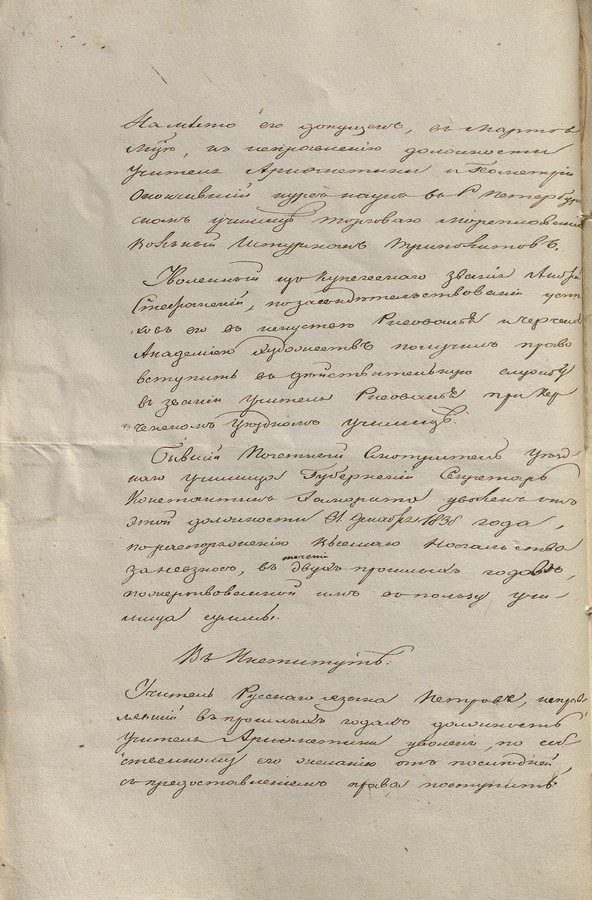 На мѣсто его допущенъ, въ Мартѣ
М-цѣ, къ исправленію должности
Учителя Ариѳметики и Геометріи
Окончившій курсъ наукъ въ С Петербург-
скомъ училищѣ торговаго мореплаванія
вольный Штурманъ
Уволенный изъ купеческаго званія Андрей
по засвидѣтельствованіи успѣ-
ховъ его въ искуствѣ Рисованія и черченія
Академіею Художествъ получилъ право
вступить въ дѣйствительную службу
въ званіи учителя Рисованія при Кер-
ченскомъ Уѣздномъ училищѣ.
Бывшій Почетный Смотритель Уѣзд-
наго училища Губернскій Секретарь
Константинъ уволенъ отъ
этой должности 31 Декабря 1838 года,
по распоряженію Высшаго Начальства
за невзносъ, въ теченіи двухъ прошлыхъ годовъ,
пожертвованной имъ въ пользу учи-
лища суммы.
Въ Институтѣ.
Учитель Русскаго языка Петровъ, исправ-
лявшій въ прошлыхъ годахъ должность
Учителя Ариѳметики уволенъ, по соб-
ственному его желанію отъ послѣдней,
съ предоставленіемъ права поступить